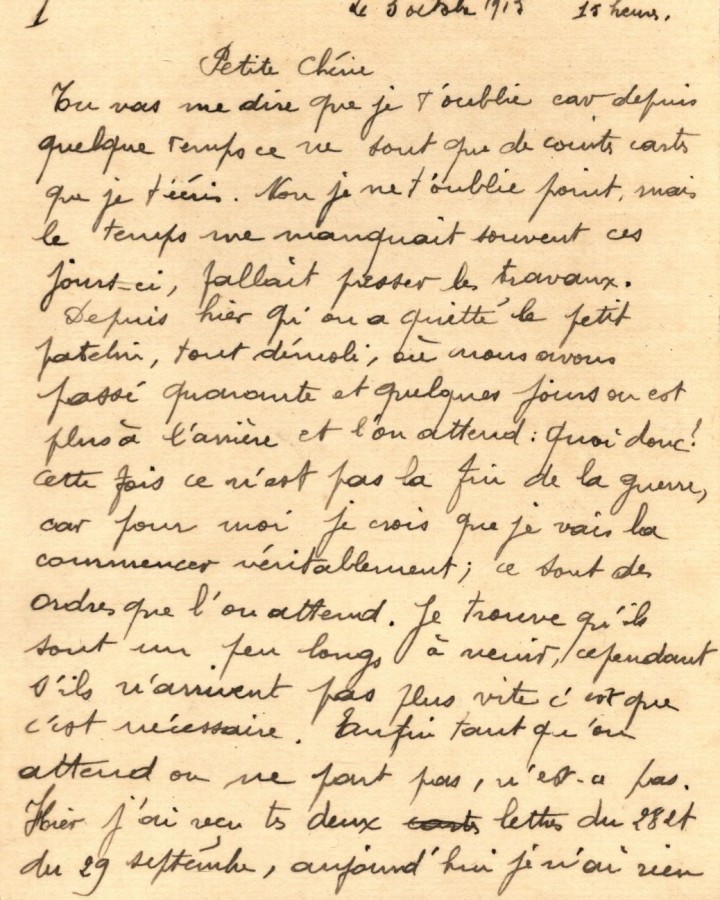 1 Le 3 octobre 1915 15 heures.
Petite Chérie
Tu vas me dire que je t'oublie car depuis
quelque temps ce ne sont que de courtes cartes
que je t'écris. Non je ne t'oublie point, mais
le temps me manquait souvent ces
jours-ci, fallait presser les travaux.
Depuis hier qu'on a quitté le petit
patelin, tout démoli, où nous avons
passé quarante et quelques jours on est
plus à l'arrière et l'on attend : quoi donc?
Cette fois ce n'est pas la fin de la guerre,
car pour moi je crois que je vais la
commencer véritablement; ce sont des
ordres que l'on attend. Je trouve qu'ils
sont un peu longs à venir, cependant
s'ils n'arrivent pas plus vite c'est que
c'est nécessaire. Enfin tant qu'on
attend on ne part pas, n'est-ce pas.
Hier j'ai reçu tes deux cartes lettres du 28 et
du 29 septembre, aujourd'hui je n'ai rien